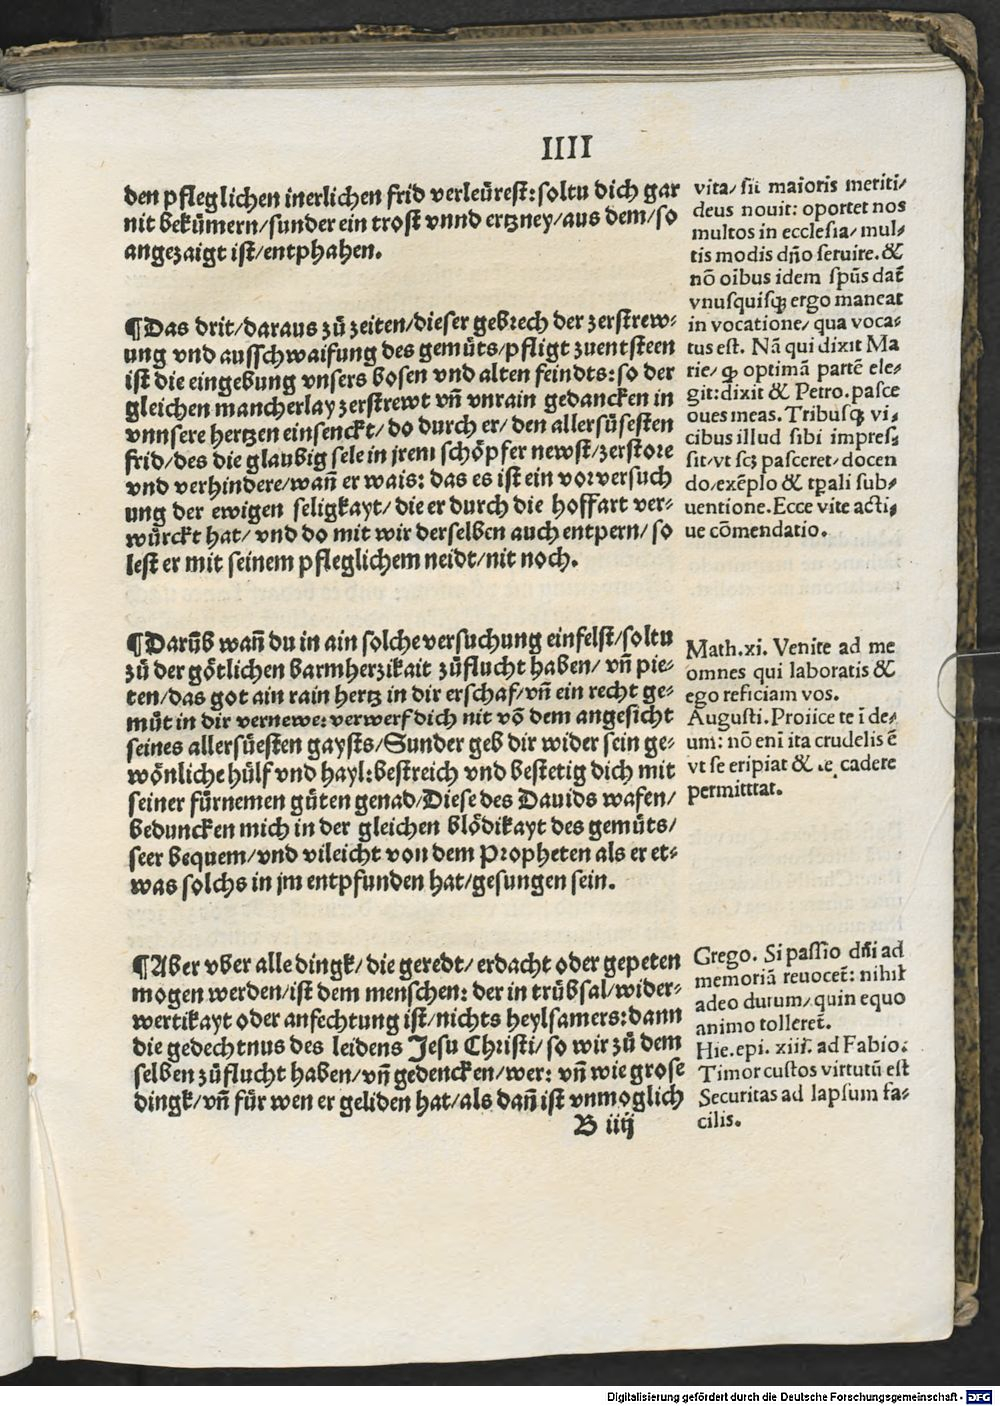 IIII
den pfleglichen inerlichen frid verleürest: soltu dich gar
nit bekümern/sunder ein trost vnnd ertzney/aus dem/so
angezaigt ist/entphahen.
¶Das drit/daraus zů zeiten/dieser gebrech der zerstrew⸗
ung vnd ausschwaifung des gemüts/pfligt zuentsteen
ist die eingebung vnsers bosen vnd alten feindts: so der
gleichen mancherlay zerstrewt vñ vnrain gedancken in
vnnsere hertzen einsenckt/ do durch er/ den allersüsesten
frid/des die glaubig sele in jrem schöpfer newst/zerstore
vnd verhindere/wañ er wais: das es ist ein vorversuch
ung der ewigen seligkayt/ die er durch die hoffart ver⸗
würckt hat/ vnd do mit wir derselben auch entpern/ so
lest er mit seinem pfleglichem neidt/nit noch.
¶Darüb wañ du in ain solche versuchung einfelst/soltu
zů der götlichen barmherzikait zůflucht haben/ vñ pie⸗
ten/das got ain rain hertz in dir erschaf/vñ ein recht ge⸗
müt in dir vernewe: verwerf dich nit võ dem angesicht
seines allersüesten gaysts/Sunder geb dir wider sein ge⸗
wönliche hülf vnd hayl: bestreich vnd bestetig dich mit
seiner fürnemen güten genad/Diese des Dauids wafen/
beduncken mich in der gleichen blödikayt des gemüts/
seer bequem/vnd vileicht von dem Propheten als er et⸗
was solchs in jm entpfunden hat/gesungen sein.
¶Aber vber alle dingk/ die geredt/ erdacht oder gepeten
mogen werden/ist dem menschen: der in trübsal/wider⸗
wertikayt oder anfechtung ist/nichts heylsamers: dann
die gedechtnus des leidens Jesu Christi/ so wir zů dem
selben zůflucht haben/vñ gedencken/wer: vñ wie grose
dingk/vñ für wen er geliden hat/als dañ ist vnmoglich
B iiij
vita/ sit maioris meriti/
deus nouit: oportet nos
multos in ecclesia/ mul⸗
tis modis dño seruire. &
nõ oibus idem spũs dat̃
vnusquisqꝫ ergo maneat
in vocatione/ qua voca⸗
tus est. Nã qui dixit Ma
rie/ ꝙ optimã partẽ ele⸗
git: dixit & Petro. pasce
oues meas. Tribusqꝫ vi⸗
cibus illud sibi impres⸗
sit/vt scꝫ pasceret/ docen
do/exẽplo & tꝑali sub⸗
uentione. Ecce vite acti⸗
ue cõmendatio.
Math. xi. Venite ad me
omnes qui laboratis &
ego reficiam vos.
Augusti. Proiice te ĩ de⸗
um: nõ eni ita crudelis ẽ
vt se eripiat & te cadere
permittat.
Grego. Si passio dñi ad
memoriã reuocet̃: nihil
adeo durum/ quin equo
animo tolleret̃.
Hie. epi. xiii. ad Fabio.
Timor custos virtutũ est
Securitas ad lapsum fa⸗
cilis.
Digitalisierung gefördert durch die Deutsche Forschungsgemeinschaft - DFG